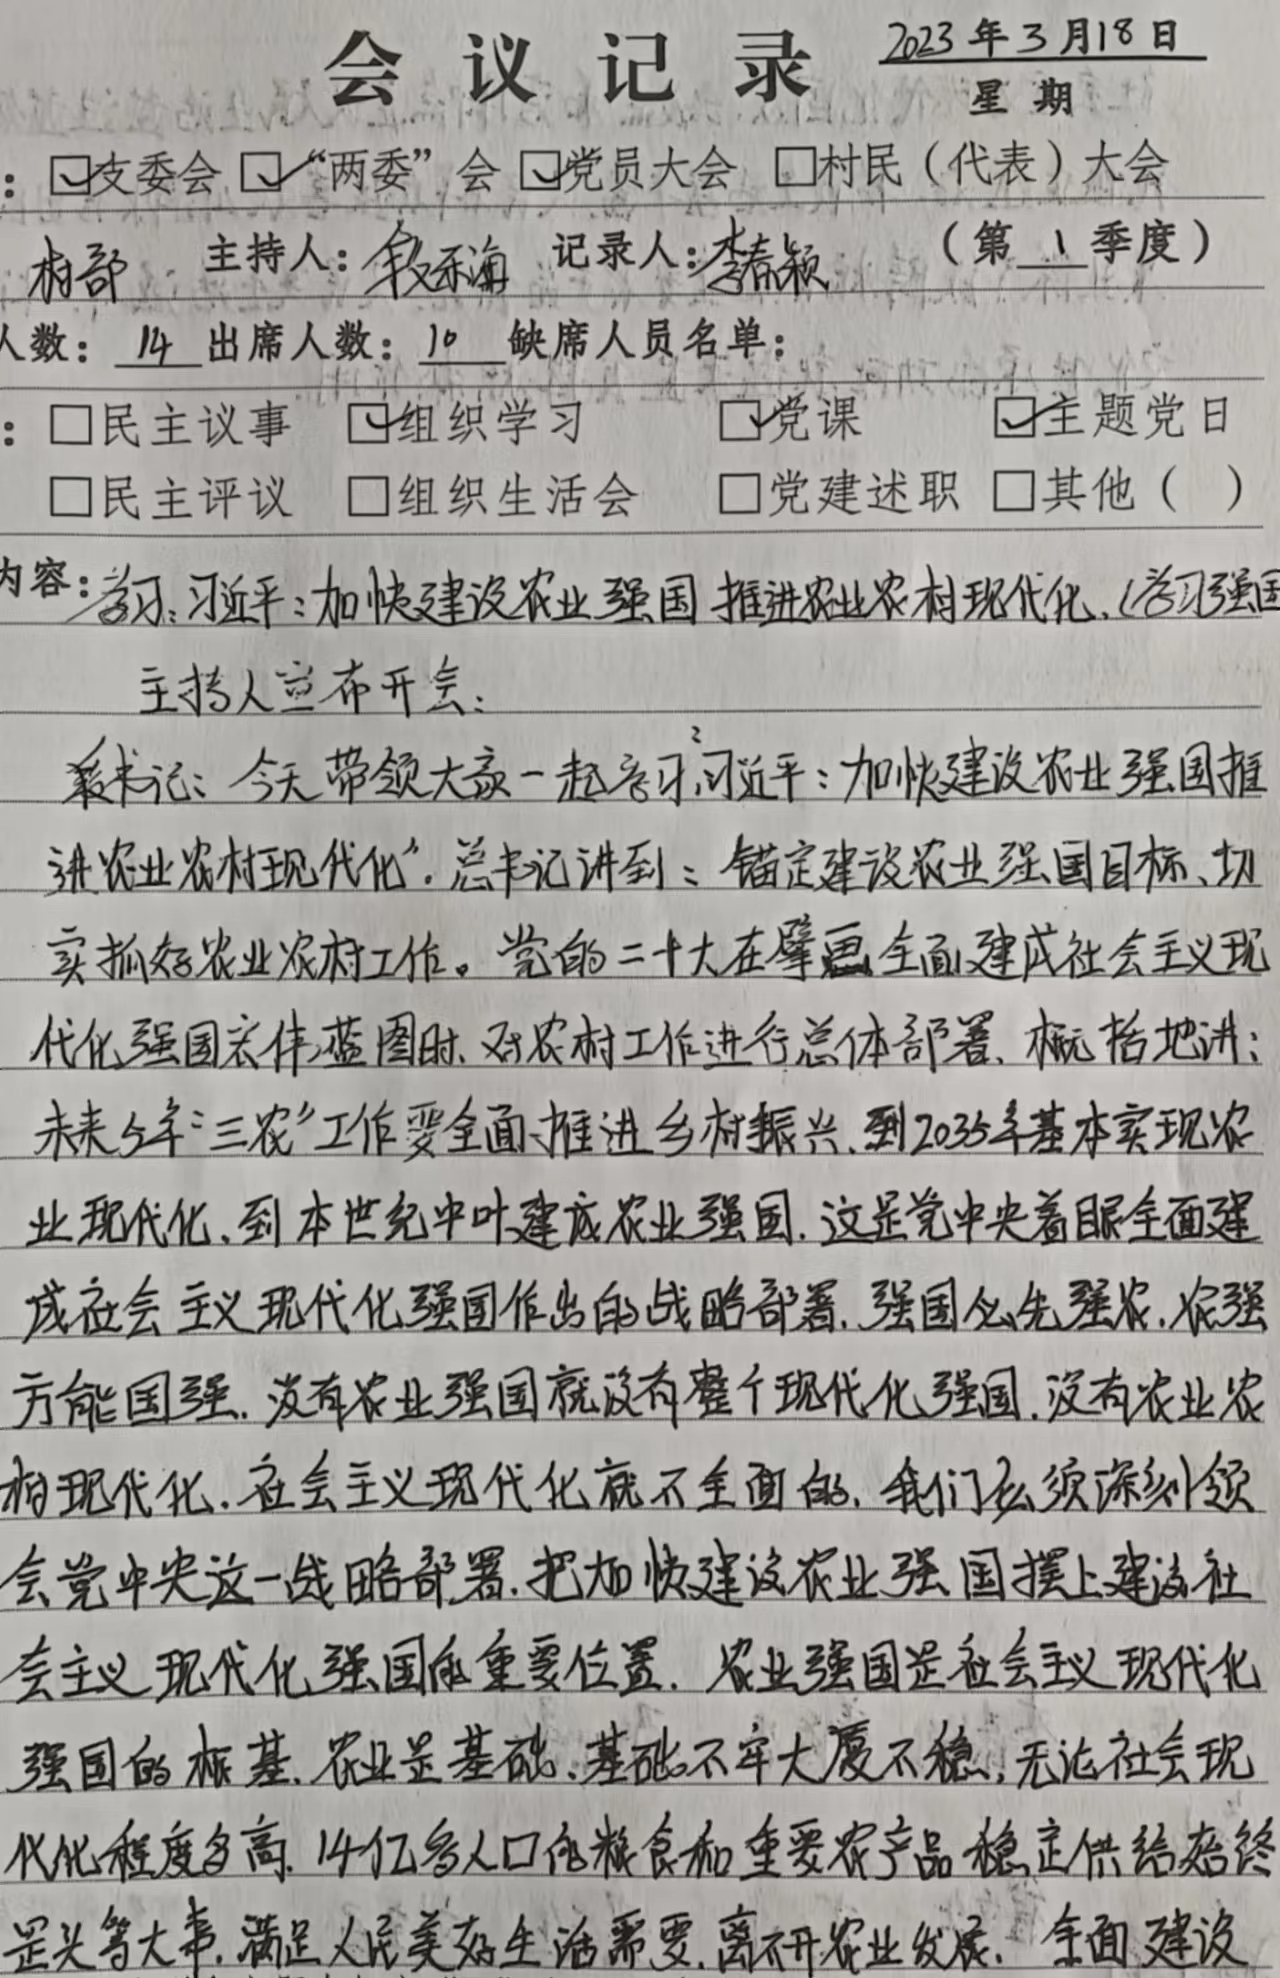 会议记录 2023年3月18日
星期
：☑支委会 ☑“两委”会 ☑党员大会 □村民（代表）大会
村部 主持人： 记录人：李春颖 （第1季度）
人数：14 出席人数：10 缺席人员名单：
：□民主议事 ☑组织学习 ☑党课 ☑主题党日
□民主评议 □组织生活会 □党建述职 □其他（ ）
内容：学习：习近平：加快建设农业强国 推进农业农村现代化.（学习强国
主持人宣布开会：
书记：今天带领大家一起学习“习近平：加快建设农业强国推
进农业农村现代化”. 总书记讲到：锚定建设农业强国目标、切
实抓好农业农村工作。党的二十大在擘画全面建成社会主义现
代化强国宏伟蓝图时、对农村工作进行总体部署、概括地讲：
未来5年“三农”工作要全面推进乡村振兴、到2035年基本实现农
业现代化、到本世纪中叶建成农业强国. 这是党中央着眼全面建
成社会主义现代化强国作出的战略部署. 强国必先强农. 农强
方能国强. 没有农业强国就没有整个现代化强国. 没有农业农
村现代化. 社会主义现代化就不全面的. 我们必须深刻领
会党中央这一战略部署. 把加快建设农业强国摆上建设社
会主义现代化强国的重要位置. 农业强国是社会主义现代化
强国的根基. 农业是基础. 基础不牢大厦不稳, 无论社会现
代化程度多高. 14亿多人口的粮食和重要农产品稳定供给始终
是头等大事. 满足人民美好生活需要. 离不开农业发展. 全面建设